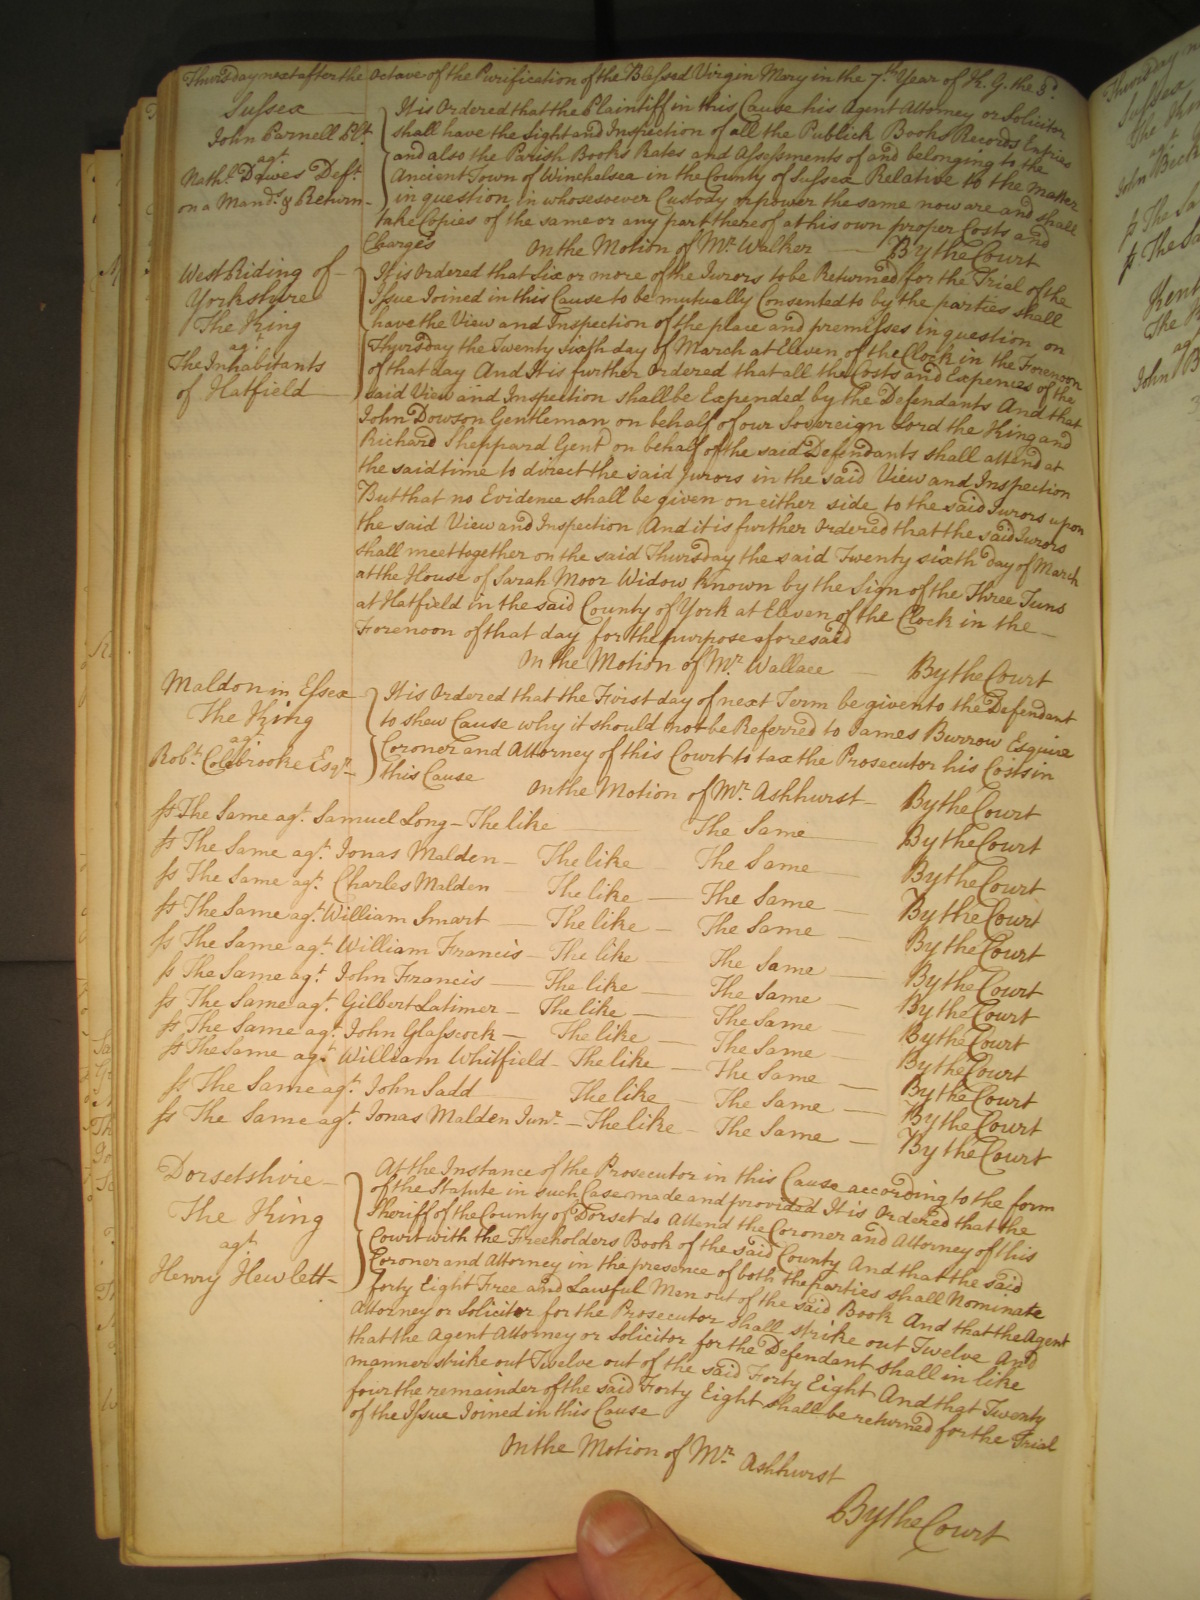 Thursday next after the Octave of the Purification of the Blessed Virgin Mary in the 7th. Year of K. G. the 3d.
Sussex
John Parnell Plt.
agt.
Nathl. Dawes Deft.
on a Mands. & Return
It is Ordered that the Plaintiff in this Cause his Agent Attorney or Solicitor
shall have the Sight and Inspection of all the Publick Books Records Entries
and also the Parish Books Rates and Assessments of and belonging to the
Ancient Town of Winchelsea in the County of Sussex Relative to the matter
in question in whosesoever Custody or power the same now are and shall
take Copies of the same or any part thereof at his own proper Costs and
Charges On the Motion of Mr. Walker By the Court
West Riding of
Yorkshire
The King
agt.
The Inhabitants
of Hatfield
It is Ordered that Six or more of the Jurors to be Returned for the Trial of the
Issue Joined in this Cause to be mutually Consented to by the parties shall
have the View and Inspection of the place and premisses in question on
Thursday the Twenty Sixth day of March at Eleven of the Clock in the Forenoon
of that day And It is further Ordered that all the Costs and Expences of the
said View and Inspection shall be Expended by the Defendants And that
John Dowson Gentleman on behalf of our Sovereign Lord the King and
Richard Sheppard Gent on behalf of the said Defendants shall attend at
the said time to direct the said Jurors in the said View and Inspection
But that no Evidence shall be given on either side to the said Jurors upon
the said View and Inspection And it is further Ordered that the said Jurors
shall meet together on the said Thursday the said Twenty sixth day of March
at the House of Sarah Moor Widow known by the Sign of the Three Tuns
at Hatfield in the said County of York at Eleven of the Clock in the
Forenoon of that day for the purpose aforesaid
On the Motion of Mr. Wallace By the Court
Maldon in Essex
The King
agt.
Robt. Colebrooke Esqr.
It is Ordered that the First day of next Term be given to the Defendant
to shew Cause why it should not be Referred to James Burrow Esquire
Coroner and Attorney of this Court to tax the Prosecutor his Costs in
this Cause On the Motion of Mr. Ashhurst By the Court
ss The Same agt. Samuel Long The like The Same By the Court
ss The Same agt. Jonas Malden The like The Same By the Court
ss The Same agt. Charles Malden The like The Same By the Court
ss The Same agt. William Smart The like The Same By the Court
ss The Same agt. William Francis The like The Same By the Court
ss The Same agt. John Francis The like The Same By the Court
ss The Same agt. Gilbert Latimer The like The Same By the Court
ss The Same agt. John Glasscock The like The Same By the Court
ss The Same agt. William Whitfield The like The Same By the Court
ss The Same agt. John Sadd The like The Same By the Court
ss The Same agt. Jonas Malden Junr. The like The Same By the Court
Dorsetshire
The King
agt.
Henry Hewlett
At the Instance of the Prosecutor in this Cause according to the form
of the Statute in such Case made and provided It is Ordered that the
Sheriff of the County of Dorset do Attend the Coroner and Attorney of this
Court with the Freeholders Book of the said County And that the said
Coroner and Attorney in the presence of both the parties shall Nominate
Forty Eight Free and Lawful Men out of the said Book And that the Agent
Attorney or Solicitor for the Prosecutor shall strike out Twelve And
that the Agent Attorney or Solicitor for the Defendant shall in like
manner strike out Twelve out of the said Forty Eight And that Twenty
four the remainder of the said Forty Eight shall be returned for the Trial
of the Issue Joined in this Cause
On the Motion of Mr. Ashhurst
By the Court
Thursday
Sussex
agt
John
Kent
The
John